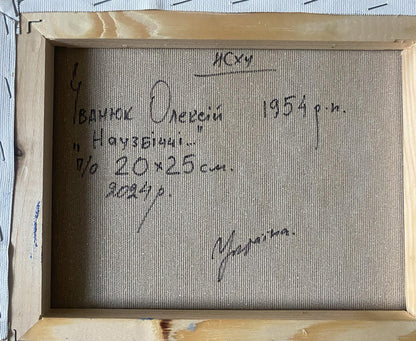 НСХУ
Іванюк Олексій 1954 р.н.
"Наузбіччі..."
п/о 20×25 см.
2024 р.
Україна.